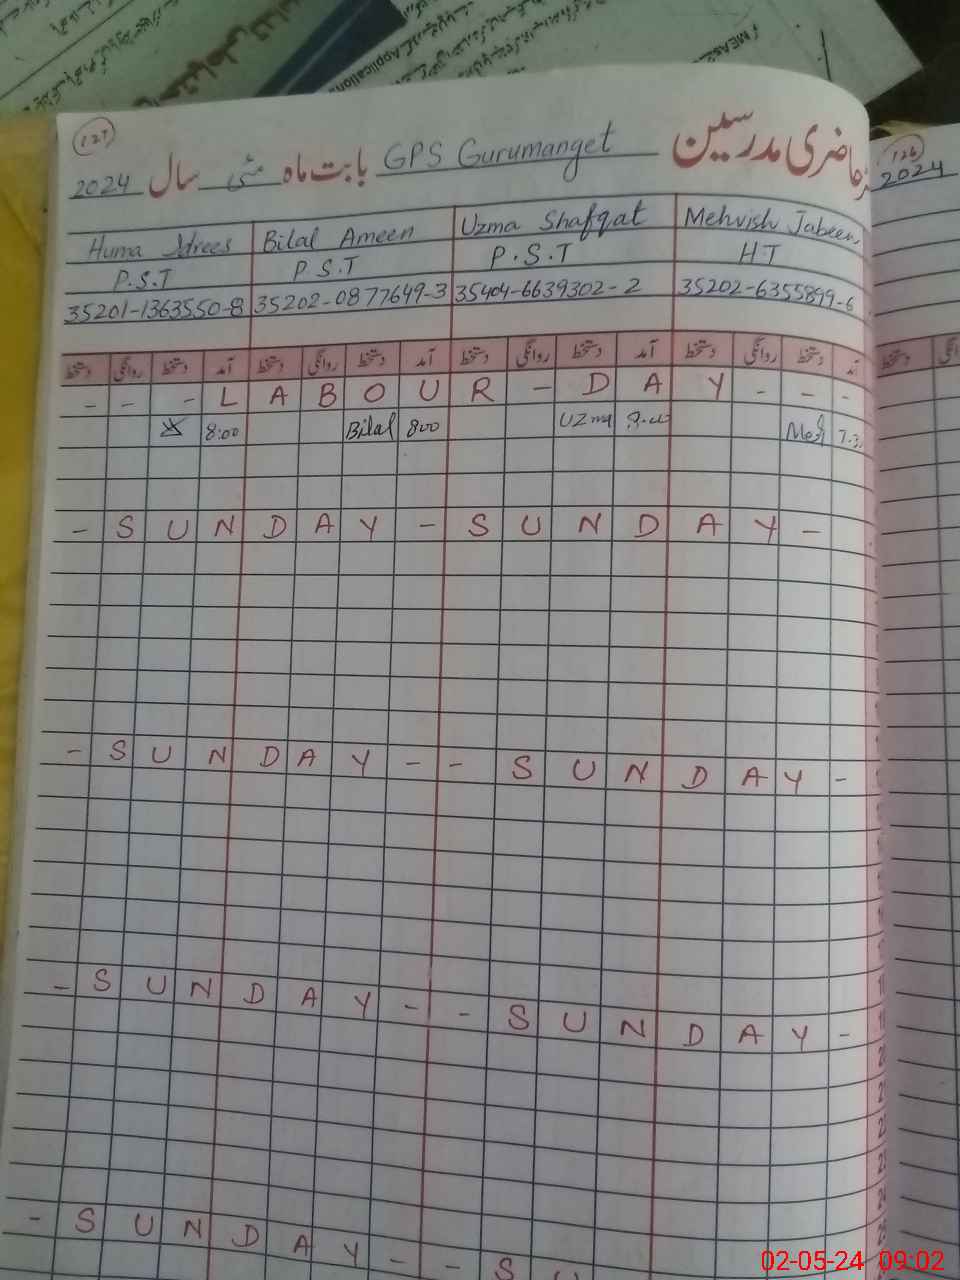 127
حاضری مدرسین GPS Gurumanget بابت ماہ مئی سال 2024
126
2024
Huma Idrees Bilal Ameen Uzma Shafqat Mehvish Jabeen
P.S.T P.S.T P.S.T HT
35201-1363550-8 35202-0877649-3 35404-6639302-2 35202-6355899-6
آمد دستخط روانگی دستخط آمد دستخط روانگی دستخط آمد دستخط روانگی دستخط آمد دستخط روانگی دستخط
- - - L A B O U R - D A Y - - -
8:00 Bilal 800 Uzma
- S U N D A Y - S U N D A Y -
- S U N D A Y - - S U N D A Y -
- S U N D A Y - - S U N D A Y -
- S U N D A Y - - S U
02-05-24 09:02